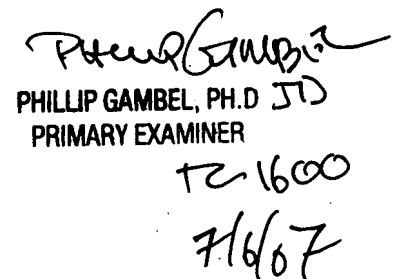 PHILLIP GAMBEL
PHILLIP GAMBEL, PH.D JD
PRIMARY EXAMINER
TC 1600
7/6/07